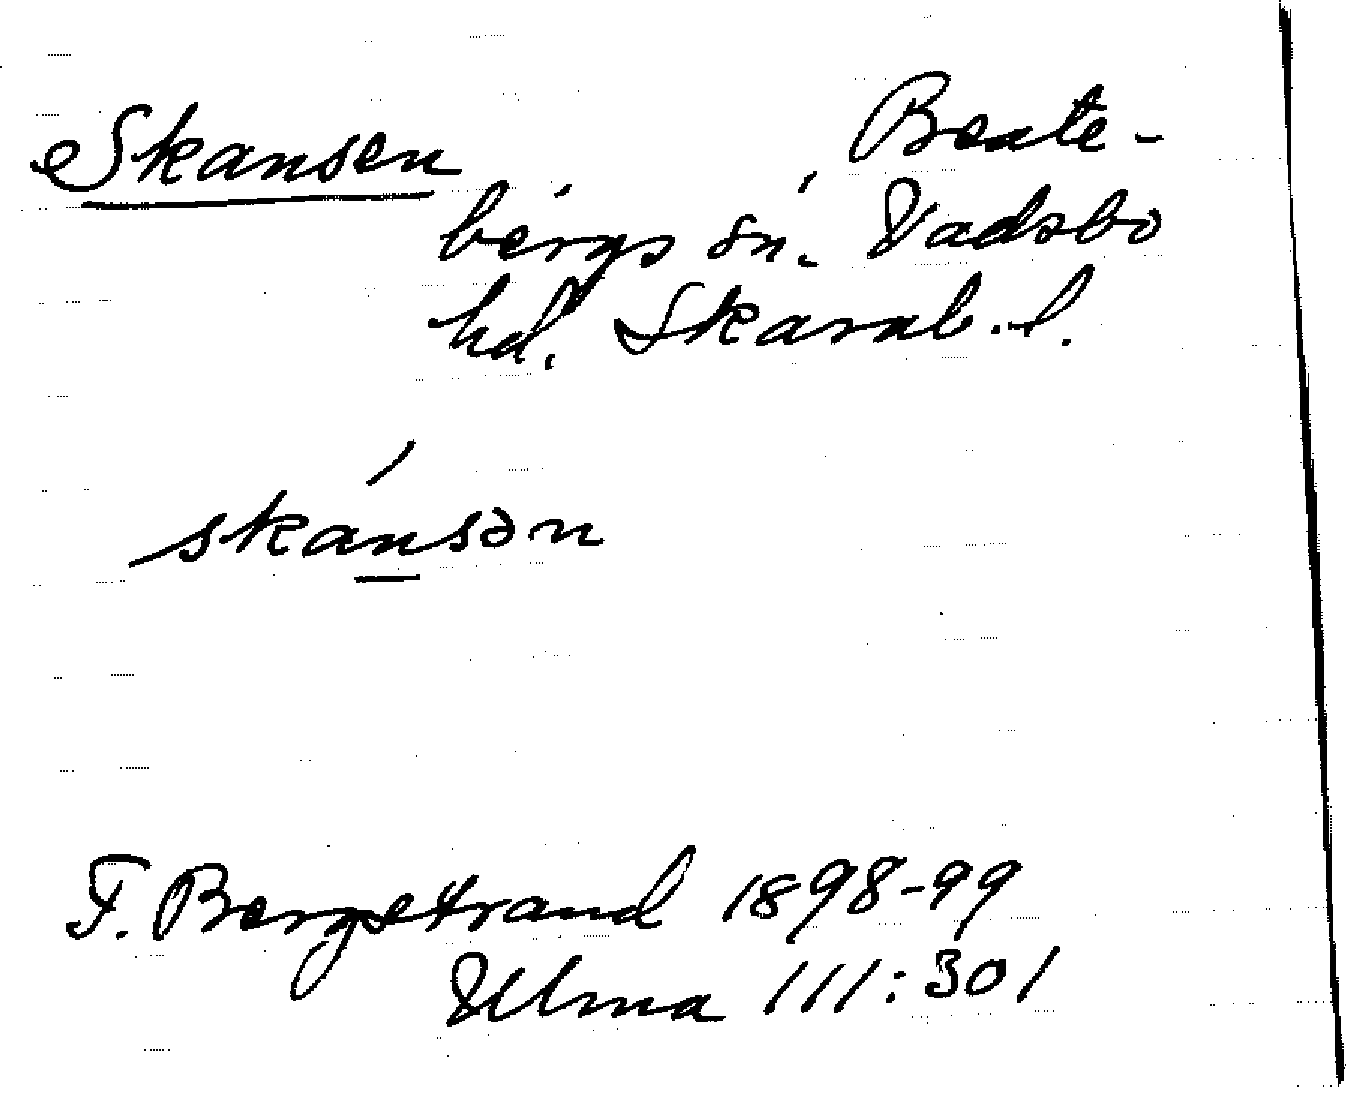 Skansen
Beate-
bergs sn. Vadsbo
hd. Skarab. l.
skánsən
F. Bergstrand 1898-99
Ulma 111:301